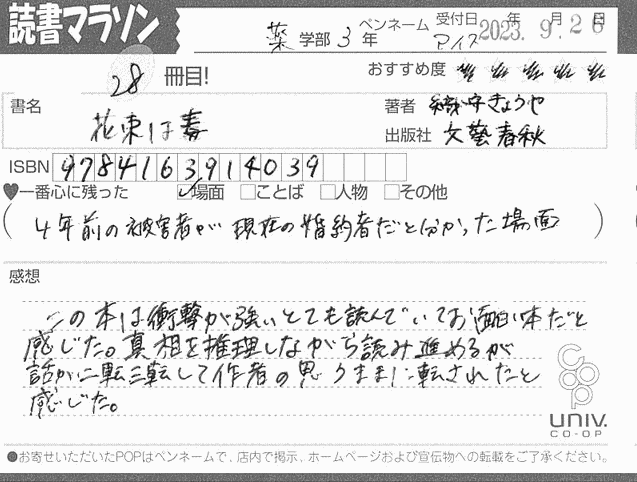 読書マラソン
薬 学部 3 年 ペンネーム アイス 受付日 2023. 年 9. 月 26 日
28 冊目! おすすめ度
書名 花束は毒 著者 織守きょうや
出版社 文藝春秋
ISBN 9784163914039
♥一番心に残った ☑場面 □ことば □人物 □その他
(4年前の被害者が現在の婚約者だと分かった場面)
感想
この本は衝撃が強いとても読んでいてお面白い本だと
感じた。真相を推理しながら読み進めるが
話が二転三転して作者の思うままに転されたと
感じた。
coop
univ.
CO-OP
●お寄せいただいたPOPはペンネームで、店内で掲示、ホームページおよび宣伝物への転載をご了承ください。